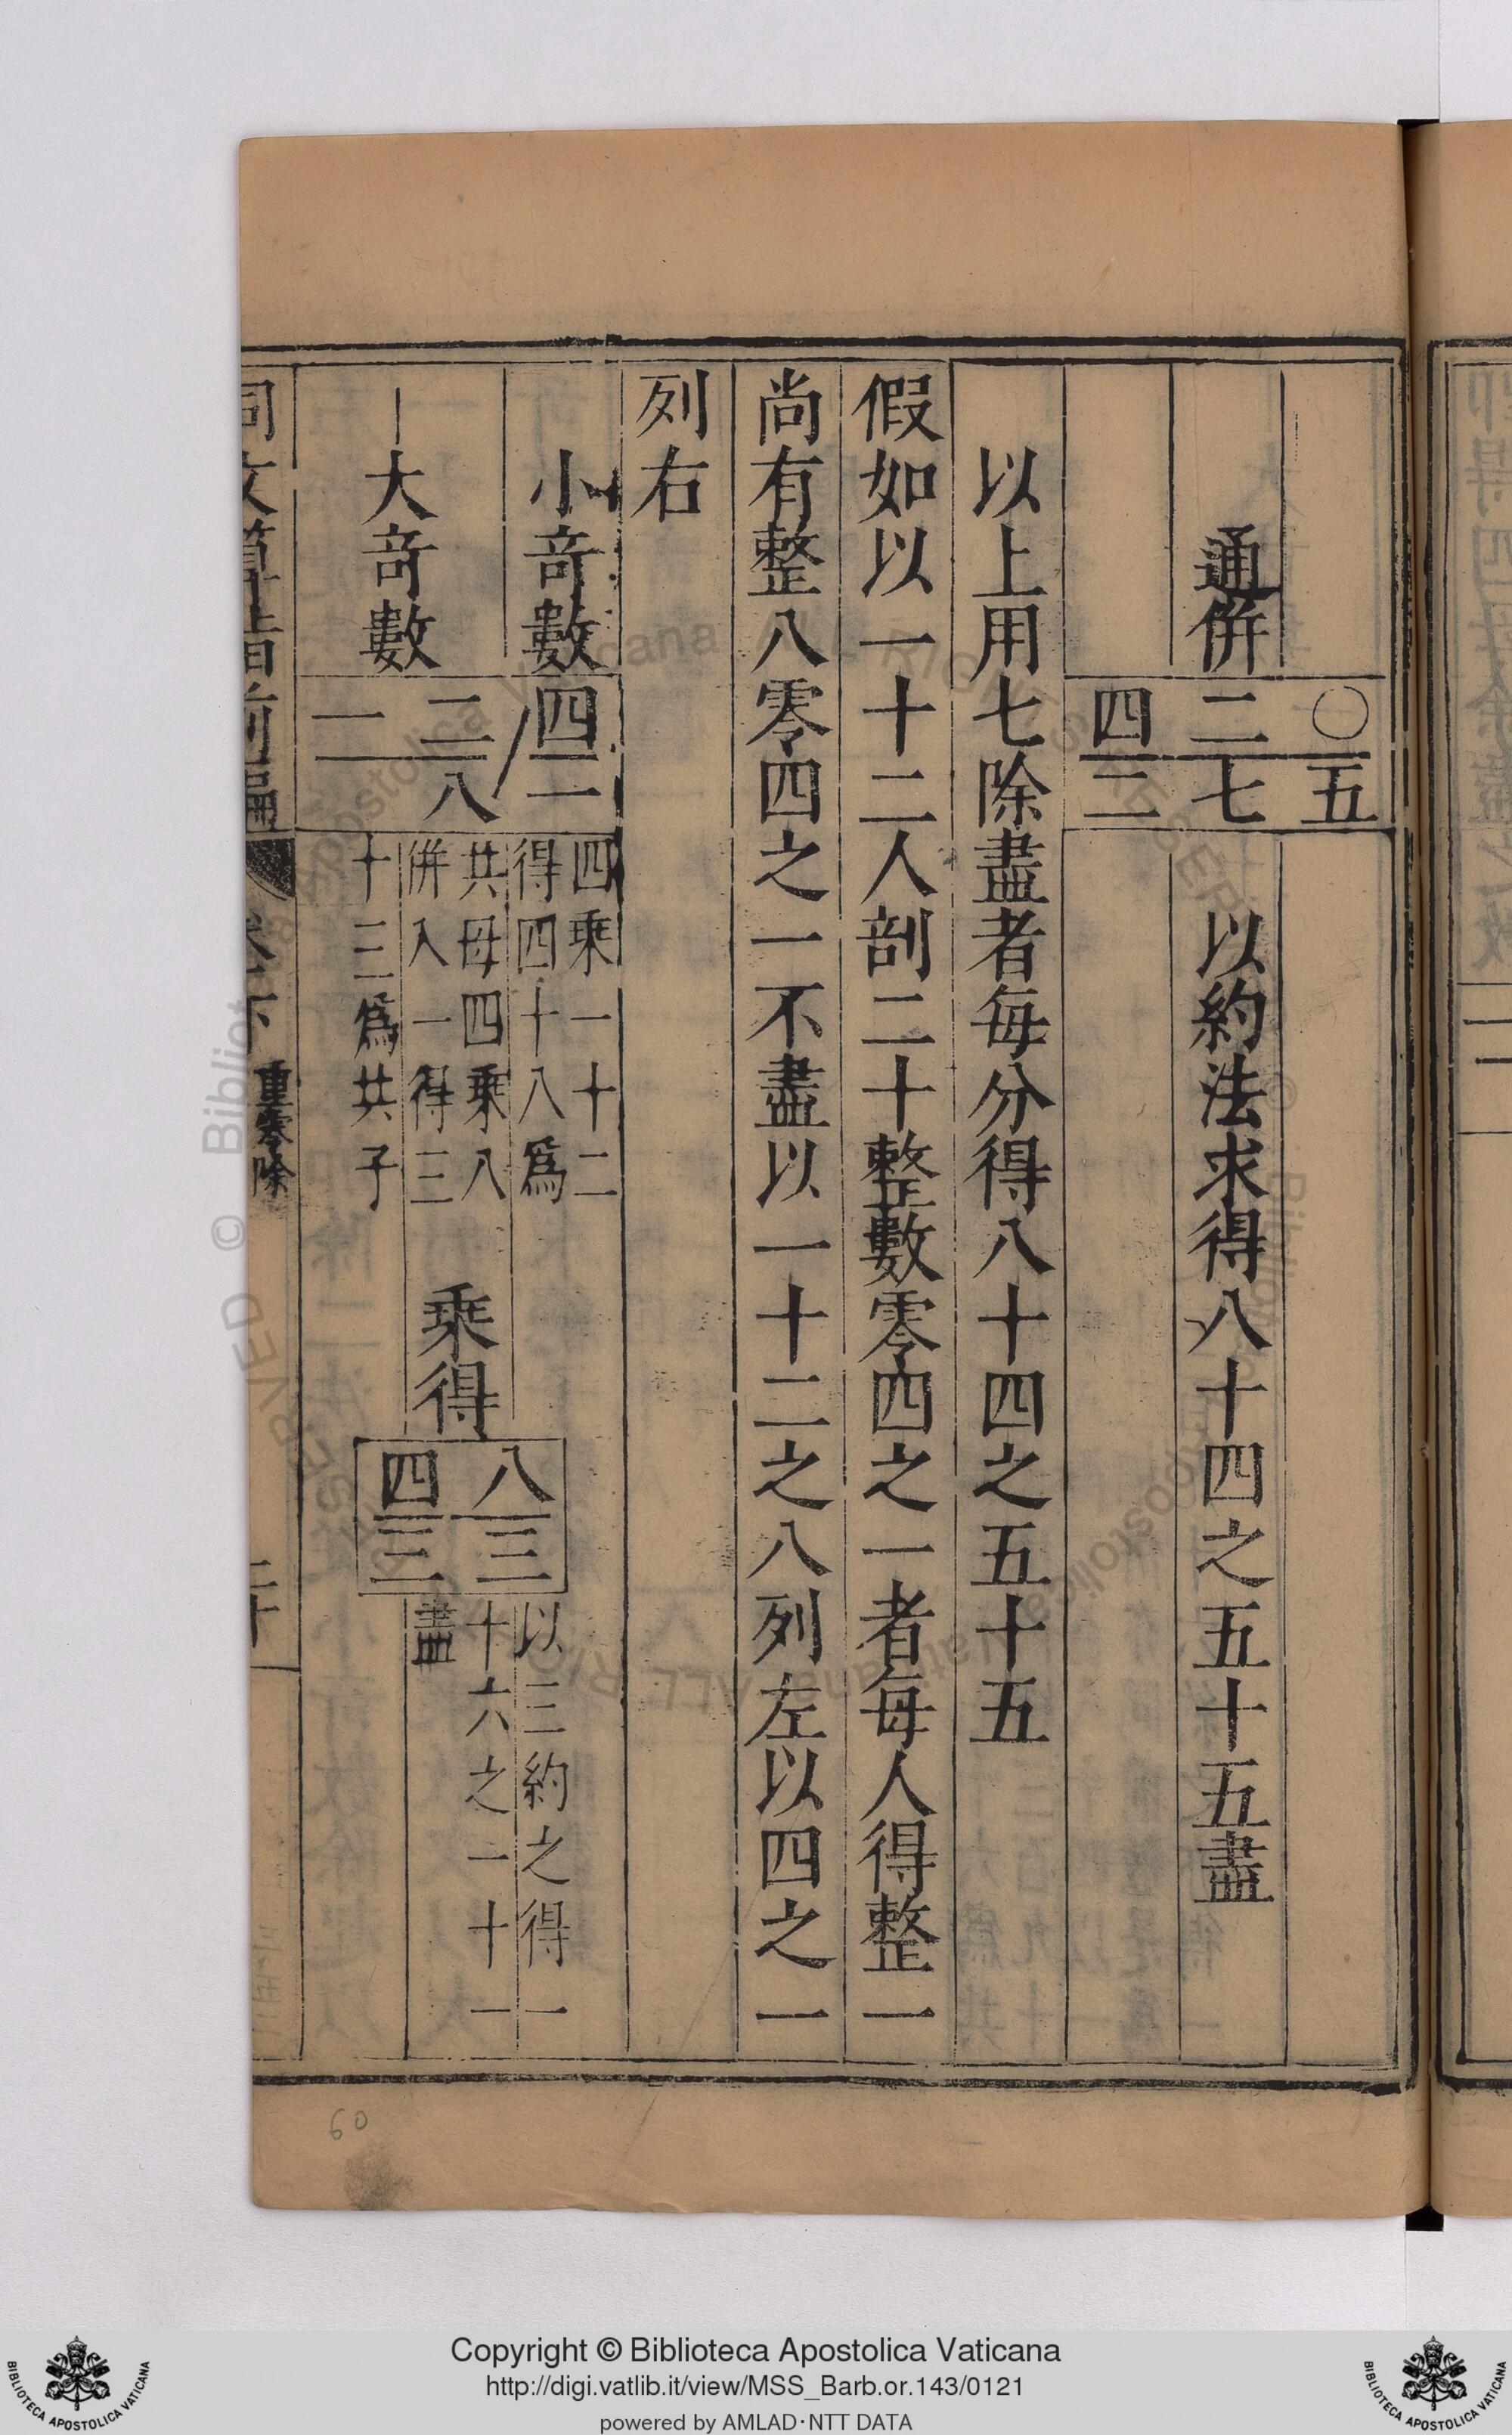 〇五
通併二七
四二
以約法求得八十四之五十五盡
以上用七除盡者每分得八十四之五十五
假如以一十二人剖二十整數零四之一者每人得整一
尚有整八零四之一不盡以一十二之八列左以四之一
列右
小奇數
四一
大奇數
二八
一
四乘一十二
得四十八爲
共母四乘八
併入一得三
十三爲共子
乘得
八三
四三
以三約之得一
十六之一十一
盡
同文算指前編
卷下
重零除
二十
60
Copyright © Biblioteca Apostolica Vaticana
http://digi.vatlib.it/view/MSS_Barb.or.143/0121
powered by AMLAD·NTT DATA
BIBLIOTECA APOSTOLICA VATICANA
BIBLIOTECA APOSTOLICA VATICANA